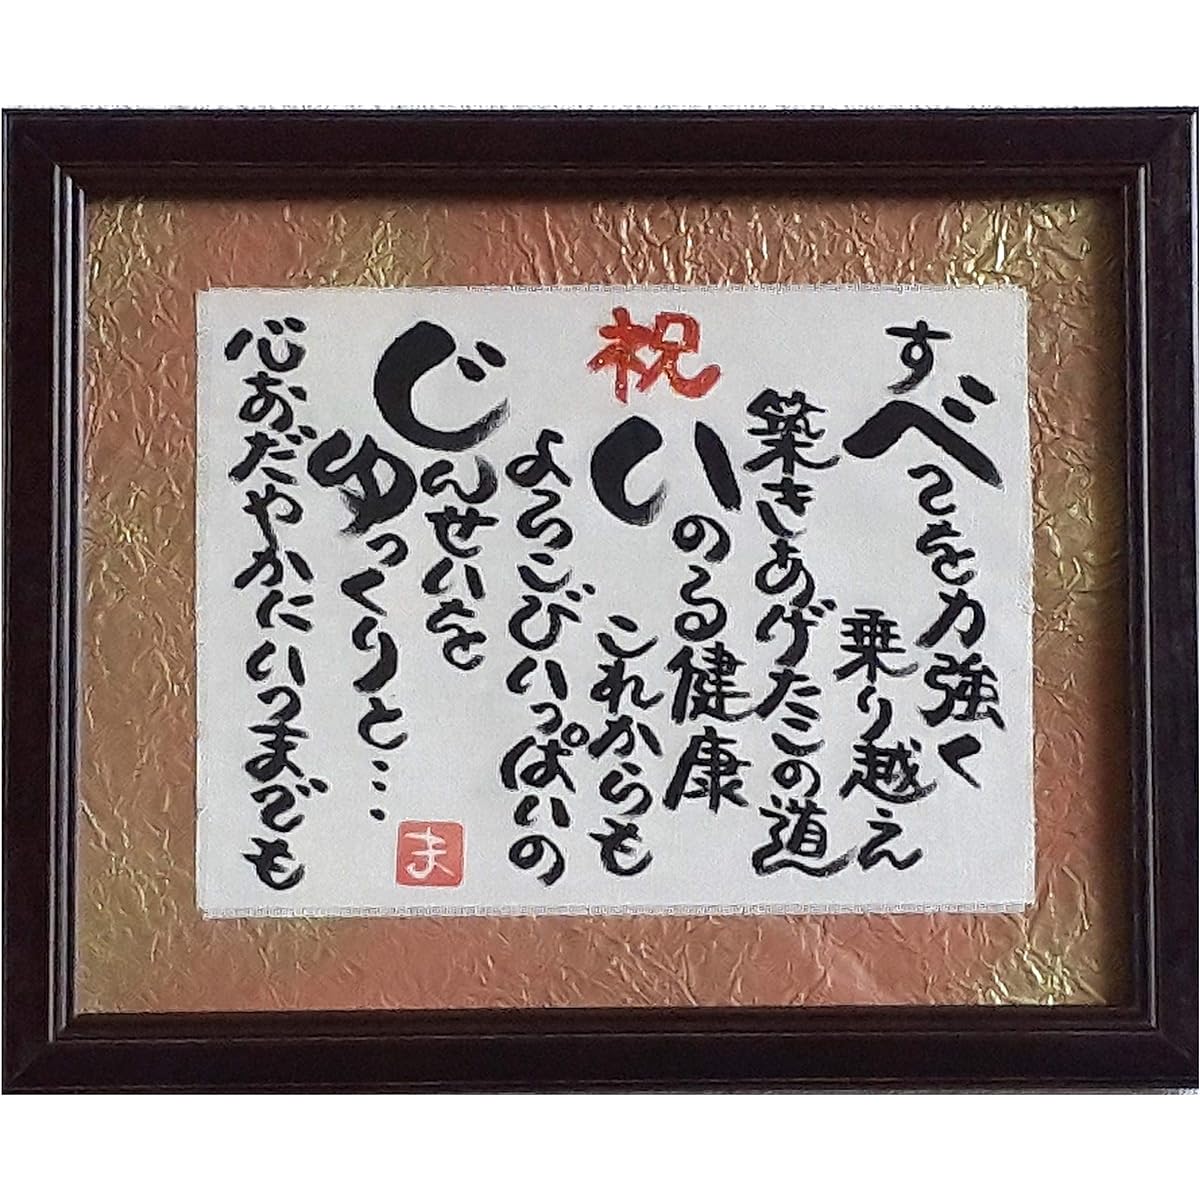 すべてを力強く
乗り越え
築きあげたこの道
祝
いのる健康
これからも
よろこびいっぱいの
じんせいを
ゆっくりと…
心おだやかにいつまでも
ま